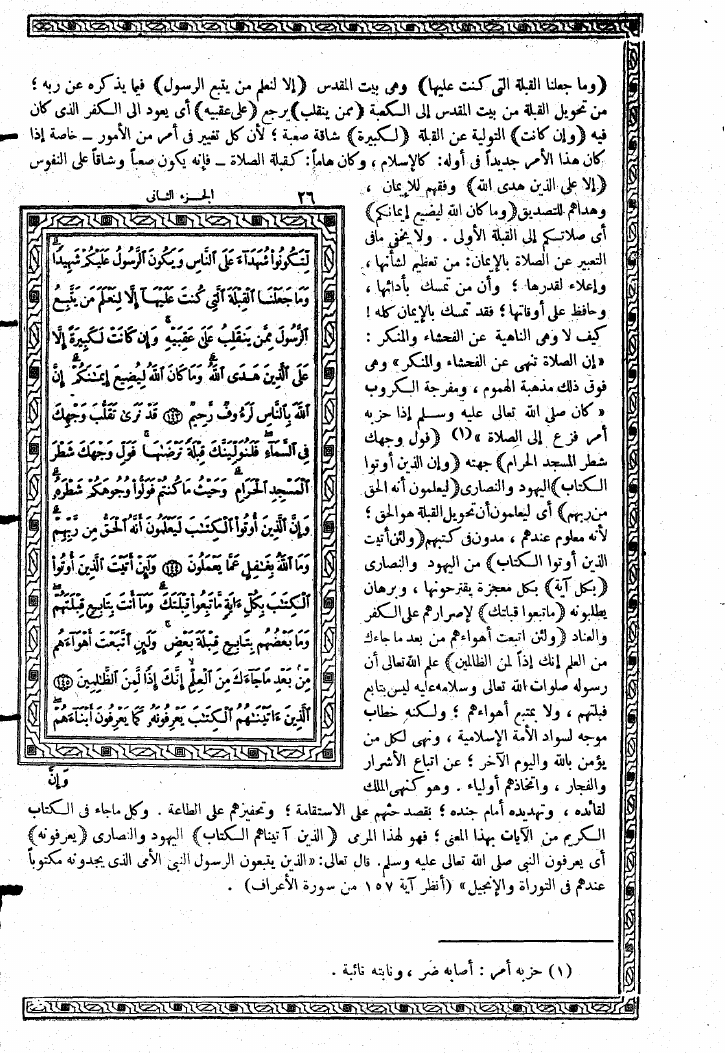 (وما جعلنا القبلة التى كنت عليها) وهى بيت المقدس (إلا لنعلم من يتبع الرسول) فيما يذكره عن ربه ؛
من تحويل القبلة من بيت المقدس إلى الكعبة (ممن ينقلب) يرجع (على عقبيه) أى يعود الى الكفر الذى كان
فيه (وإن كانت) التولية عن القبلة (لكبيرة) شاقة صعبة ؛ لأن كل تغيير فى أمر من الأمور ــ خاصة إذا
كان هذا الأمر جديداً فى أوله: كالإسلام ، وكان هاماً: كقبلة الصلاة ــ فإنه يكون صعباً وشاقاً على النفوس
(إلا على الذين هدى الله) وفقهم للإيمان ،
وهداهم للتصديق (وما كان الله ليضيع إيمانكم)
أى صلاتكم إلى القبلة الأولى . ولا يخفى مافى
التعبير عن الصلاة بالإيمان: من تعظيم لشأنها ،
وإعلاء لقدرها ؛ وأن من تمسك بأدائها ،
وحافظ على أوقاتها ؛ فقد تمسك بالإيمان كله !
كيف لا وهى الناهية عن الفحشاء والمنكر :
«إن الصلاة تنهى عن الفحشاء والمنكر» وهى
فوق ذلك مذهبة الهموم ، ومفرجة الكروب
«كان صلى الله تعالى عليه وسلم إذا حزبه
أمر فزع إلى الصلاة» (١) (فول وجهك
شطر المسجد الحرام) جهته (وإن الذين أوتوا
الكتاب) اليهود والنصارى (ليعلمون أنه الحق
من ربهم) أى ليعلمون أن تحويل القبلة هو الحق ؛
لأنه معلوم عندهم ، مدون فى كتبهم (ولئن أتيت
الذين أوتوا الكتاب) من اليهود والنصارى
(بكل آية) بكل معجزة يقترحونها ، وبرهان
يطلبونه (ماتبعوا قبلتك) لإصرارهم على الكفر
والعناد (ولئن اتبعت أهواءهم من بعد ماجاءك
من العلم إنك إذاً لمن الظالمين) علم الله تعالى أن
رسوله صلوات الله تعالى وسلامه عليه ليس بتابع
قبلتهم ، ولا بمتبع أهواءهم ؛ ولكنه خطاب
موجه لسواد الأمة الإسلامية ، ونهى لكل من
يؤمن بالله واليوم الآخر ؛ عن اتباع الأشرار
والفجار ، واتخاذهم أولياء . وهو كنهى الملك
لقائده ، وتهديده أمام جنده ؛ بقصد حثهم على الاستقامة ؛ وتحفيزهم على الطاعة . وكل ماجاء فى الكتاب
الكريم من الآيات بهذا المعنى ؛ فهو لهذا المرمى (الذين آتيناهم الكتاب) اليهود والنصارى (يعرفونه)
أى يعرفون النبى صلى الله تعالى عليه وسلم. قال تعالى: «الذين يتبعون الرسول النبى الأمى الذى يجدونه مكتوباً
عندهم فى التوراة والإنجيل» (أنظر آية ١٥٧ من سورة الأعراف) .
٢٦ الجزء الثانى
لِّتَكُونُوا۟ شُهَدَآءَ عَلَى ٱلنَّاسِ وَيَكُونَ ٱلرَّسُولُ عَلَيْكُمْ شَهِيدًا
وَمَا جَعَلْنَا ٱلْقِبْلَةَ ٱلَّتِى كُنتَ عَلَيْهَآ إِلَّا لِنَعْلَمَ مَن يَتَّبِعُ
ٱلرَّسُولَ مِمَّن يَنقَلِبُ عَلَىٰ عَقِبَيْهِ وَإِن كَانَتْ لَكَبِيرَةً إِلَّا
عَلَى ٱلَّذِينَ هَدَى ٱللَّهُ وَمَا كَانَ ٱللَّهُ لِيُضِيعَ إِيمَٰنَكُمْ إِنَّ
ٱللَّهَ بِٱلنَّاسِ لَرَءُوفٌ رَّحِيمٌ ١٤٣ قَدْ نَرَىٰ تَقَلُّبَ وَجْهِكَ
فِى ٱلسَّمَآءِ فَلَنُوَلِّيَنَّكَ قِبْلَةً تَرْضَىٰهَا فَوَلِّ وَجْهَكَ شَطْرَ
ٱلْمَسْجِدِ ٱلْحَرَامِ وَحَيْثُ مَا كُنتُمْ فَوَلُّوا۟ وُجُوهَكُمْ شَطْرَهُۥ
وَإِنَّ ٱلَّذِينَ أُوتُوا۟ ٱلْكِتَٰبَ لَيَعْلَمُونَ أَنَّهُ ٱلْحَقُّ مِن رَّبِّهِمْ
وَمَا ٱللَّهُ بِغَٰفِلٍ عَمَّا يَعْمَلُونَ ١٤٤ وَلَئِنْ أَتَيْتَ ٱلَّذِينَ أُوتُوا۟
ٱلْكِتَٰبَ بِكُلِّ ءَايَةٍ مَّا تَبِعُوا۟ قِبْلَتَكَ وَمَآ أَنتَ بِتَابِعٍ قِبْلَتَهُمْ
وَمَا بَعْضُهُم بِتَابِعٍ قِبْلَةَ بَعْضٍ وَلَئِنِ ٱتَّبَعْتَ أَهْوَآءَهُم
مِّنۢ بَعْدِ مَا جَآءَكَ مِنَ ٱلْعِلْمِ إِنَّكَ إِذًا لَّمِنَ ٱلظَّٰلِمِينَ ١٤٥
ٱلَّذِينَ ءَاتَيْنَٰهُمُ ٱلْكِتَٰبَ يَعْرِفُونَهُۥ كَمَا يَعْرِفُونَ أَبْنَآءَهُمْ
وَإِنَّ
(١) حزبه أمر : أصابه ضر ، ونابته نائبة .